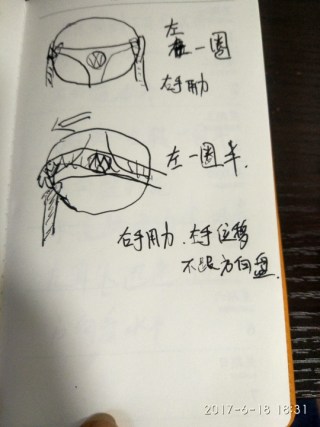 左
一圈
右手用力
左一圈半.
右手用力.右手位移
不跟方向盘.
2017-6-18 18:31